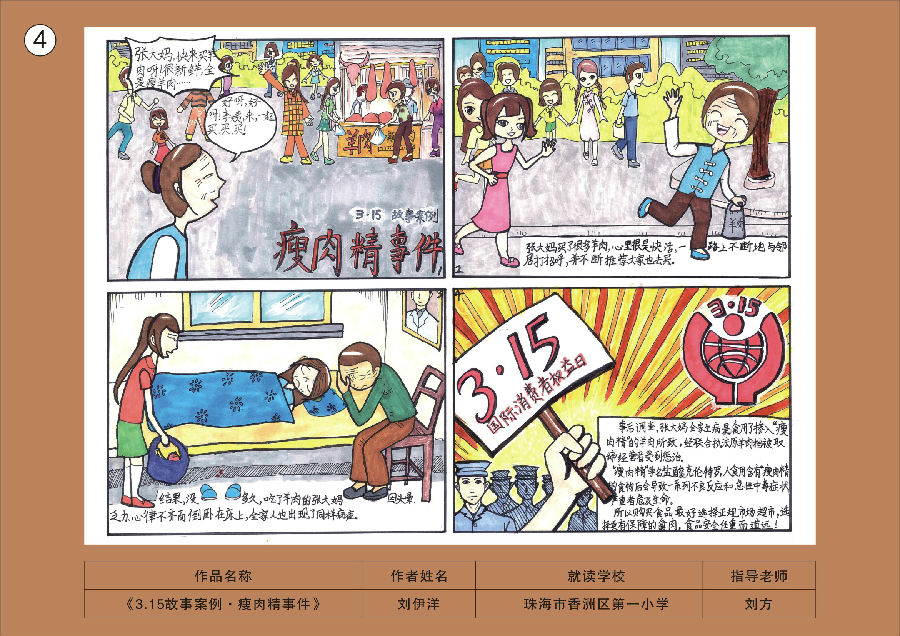 4
张大妈,快来买羊
肉呀!很新鲜,全
是瘦羊肉……
好呀,好
呀!李嫂,来,一起
买买买!
羊肉
3·15 故事案例
瘦肉精事件
张大妈买了很多羊肉,心里很是快活,一路上不断地与邻
居打招呼,并不断推荐大家也去买。
2
羊肉
3
结果,没多久,吃了羊肉的张大妈因头晕
乏力、心律不齐而倒卧在床上,全家人也出现了同样病症。
4
3·15
国际消费者权益日
3·15
事后调查,张大妈全家生病是食用了掺入"瘦
肉精"的羊肉所致,经联合执法,原羊肉档被取
缔,经营者受到惩治。
"瘦肉精"学名盐酸克伦特罗,人食用含有"瘦肉精"
的食物后会导致一系列不良反应和急性中毒症状,
重者危及生命。
所以购买食品最好选择正规市场超市,选
择更有保障的禽肉,食品安全任重而道远!
作品名称 作者姓名 就读学校 指导老师
《3.15故事案例·瘦肉精事件》 刘伊洋 珠海市香洲区第一小学 刘方